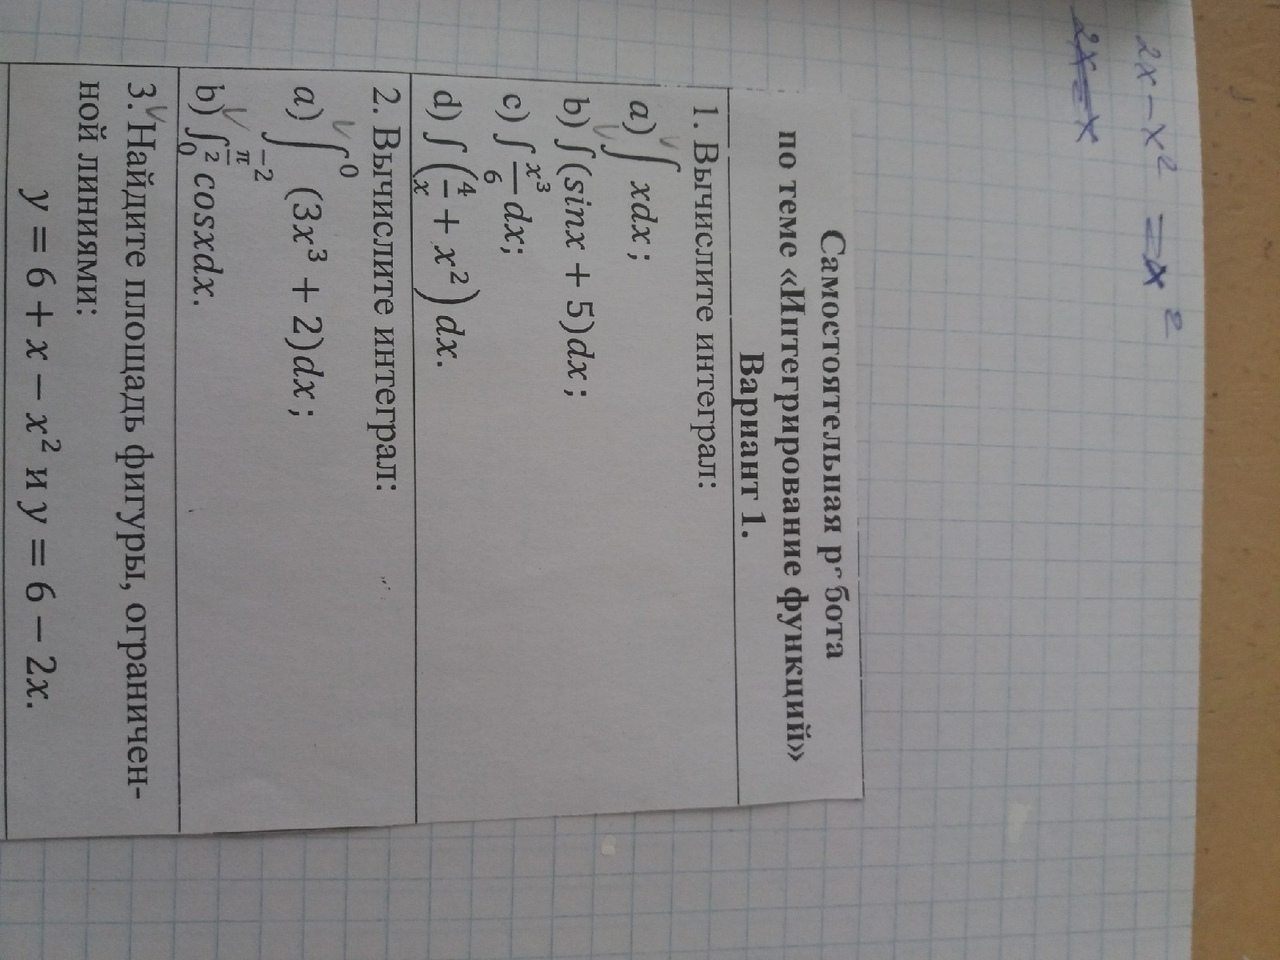 2x − x² = x²
2x = x
Самостоятельная работа
по теме «Интегрирование функций»
Вариант 1.
1. Вычислите интеграл:
a) ∫ xdx;
b) ∫(sinx + 5)dx;
c) ∫ x³/6 dx;
d) ∫ (4/x + x²) dx.
2. Вычислите интеграл:
a) ∫₋₂⁰ (3x³ + 2)dx;
b) ∫₀^(π/2) cosxdx.
3. Найдите площадь фигуры, ограничен-
ной линиями:
y = 6 + x − x² и y = 6 − 2x.